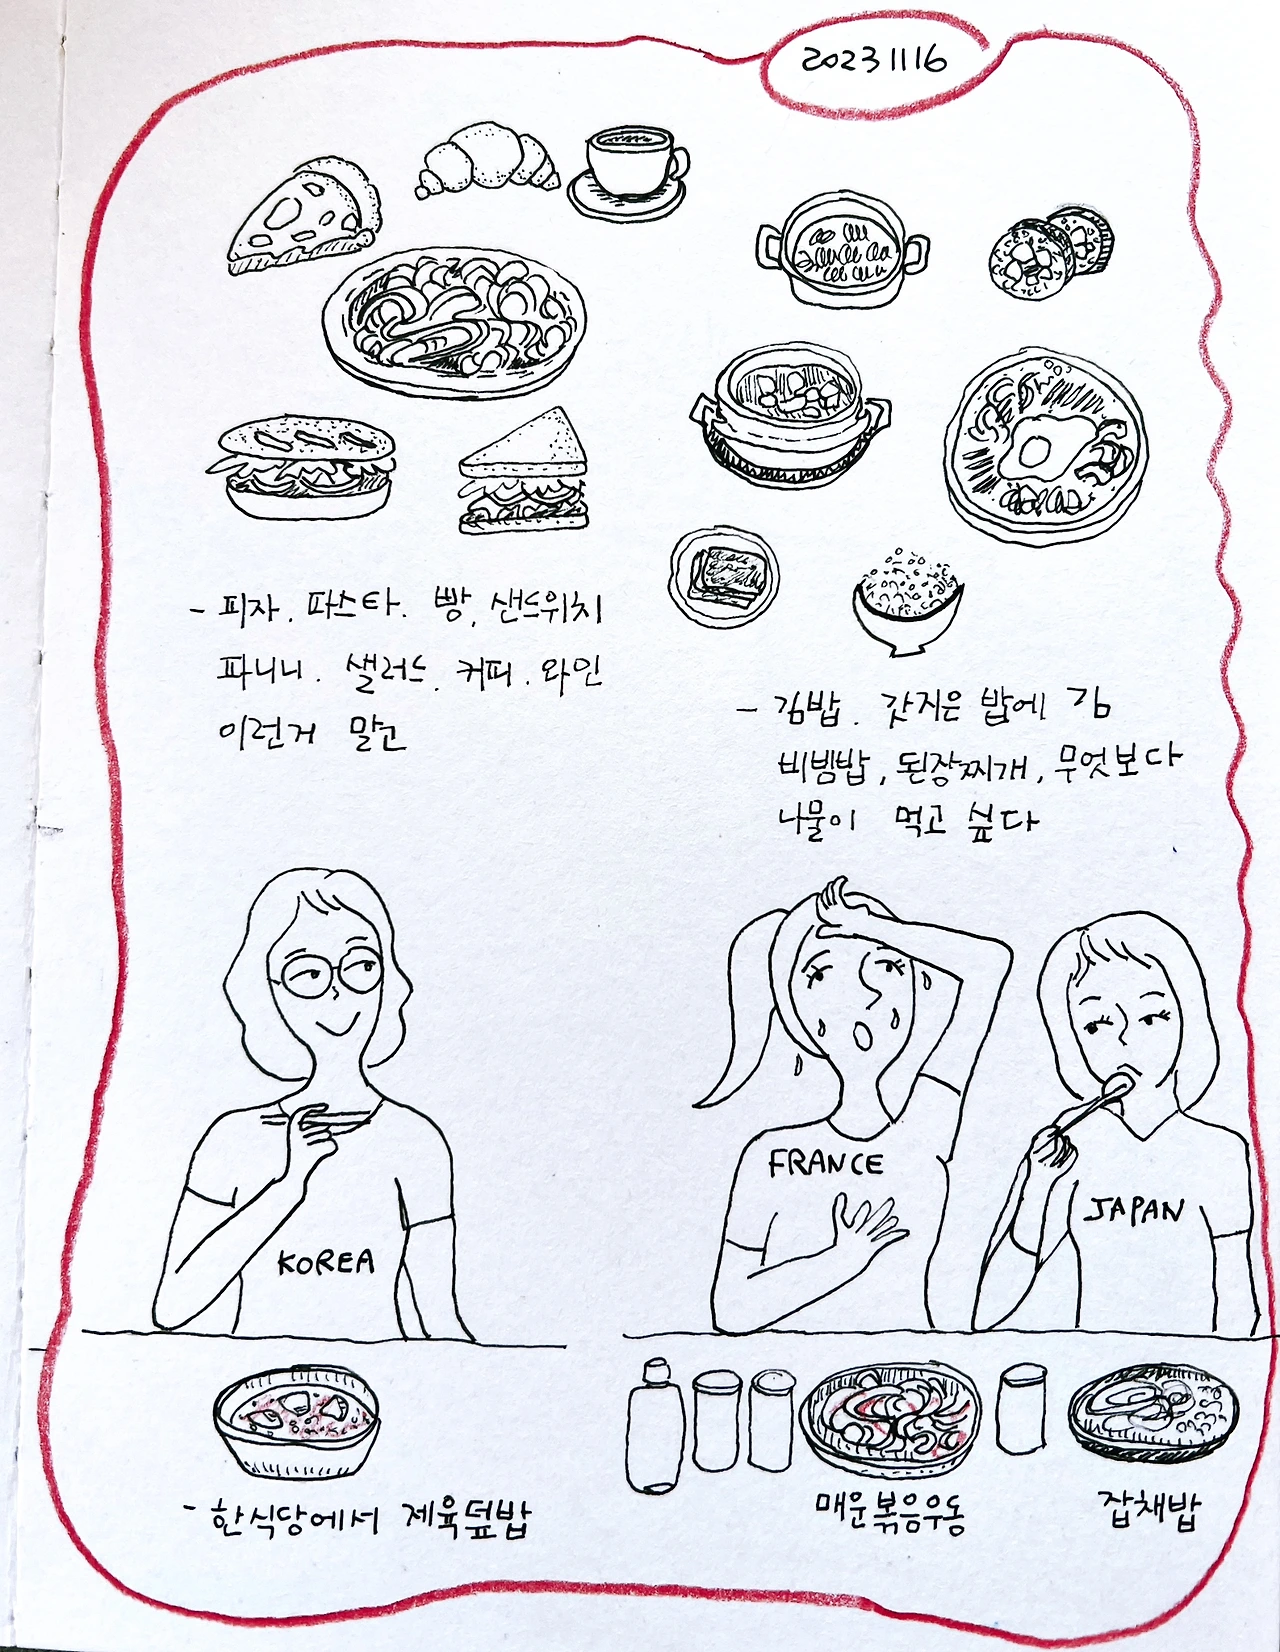 20231116
- 피자. 파스타. 빵, 샌드위치
파니니. 샐러드. 커피. 와인
이런거 말고
- 김밥. 갓지은 밥에 김
비빔밥, 된장찌개, 무엇보다
나물이 먹고 싶다
KOREA
FRANCE
JAPAN
- 한식당에서 제육덮밥
매운볶음우동
잡채밥